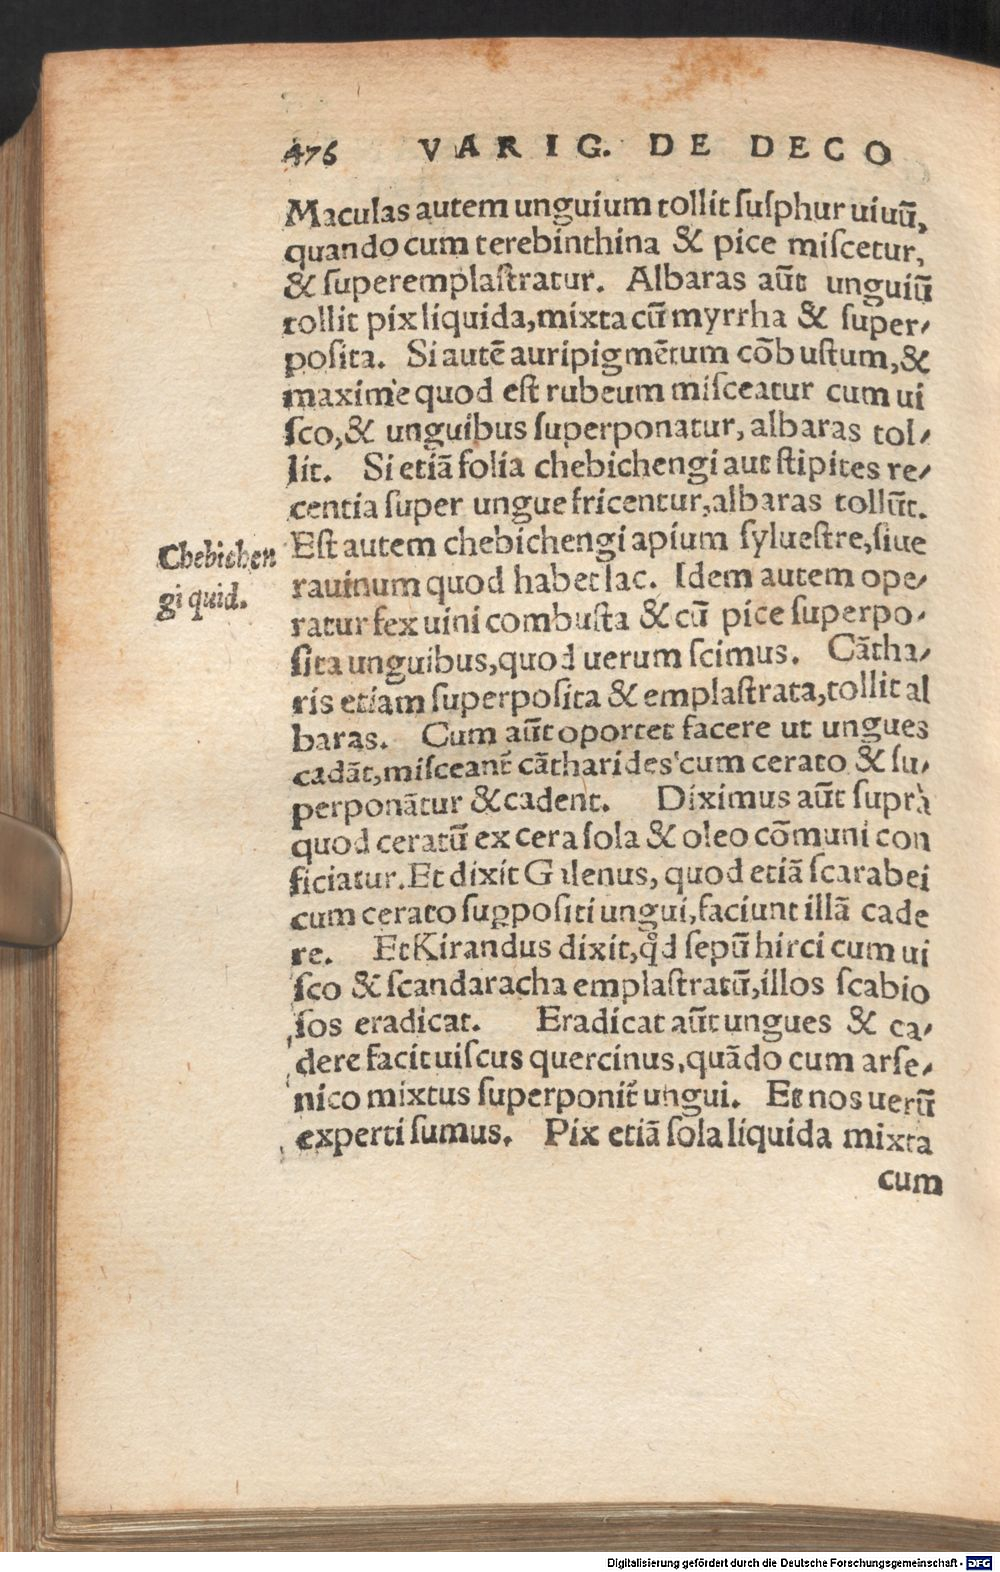 476 VARIG. DE DECO
Maculas autem unguium tollit ſuſphur uiuū,
quando cum terebinthina & pice miſcetur,
& ſuperemplaſtratur. Albaras aūt unguiū
tollit pix liquida, mixta cū myrrha & ſuper-
poſita. Si autē auripigmētum cōbuſtum, &
maxime quod eſt rubeum miſceatur cum ui
ſco, & unguibus ſuperponatur, albaras tol-
lit. Si etiā folia chebichengi aut ſtipites re-
centia ſuper ungue fricentur, albaras tollūt.
Eſt autem chebichengi apium ſylueſtre, ſiue
rauinum quod habet lac. Idem autem ope-
Chebichen
gi quid.
ratur fex uini combuſta & cū pice ſuperpo-
ſita unguibus, quod uerum ſcimus. Cātha-
ris etiam ſuperpoſita & emplaſtrata, tollit al
baras. Cum aūt oportet facere ut ungues
cadāt, miſceant᷑ cātharides cum cerato & ſu-
perponātur & cadent. Diximus aūt ſuprà
quod ceratū ex cera ſola & oleo cōmuni con
ficiatur. Et dixit Galenus, quod etiā ſcarabei
cum cerato ſuppoſiti ungui, faciunt illā cade
re. Et Kirandus dixit, qd̊ ſepū hirci cum ui
ſco & ſcandaracha emplaſtratū, illos ſcabio
ſos eradicat. Eradicat aūt ungues & ca-
dere facit uiſcus quercinus, quādo cum arſe-
nico mixtus ſuperponit᷑ ungui. Et nos uerū
experti ſumus. Pix etiā ſola liquida mixta
cum
Digitalisierung gefördert durch die Deutsche Forschungsgemeinschaft - DFG